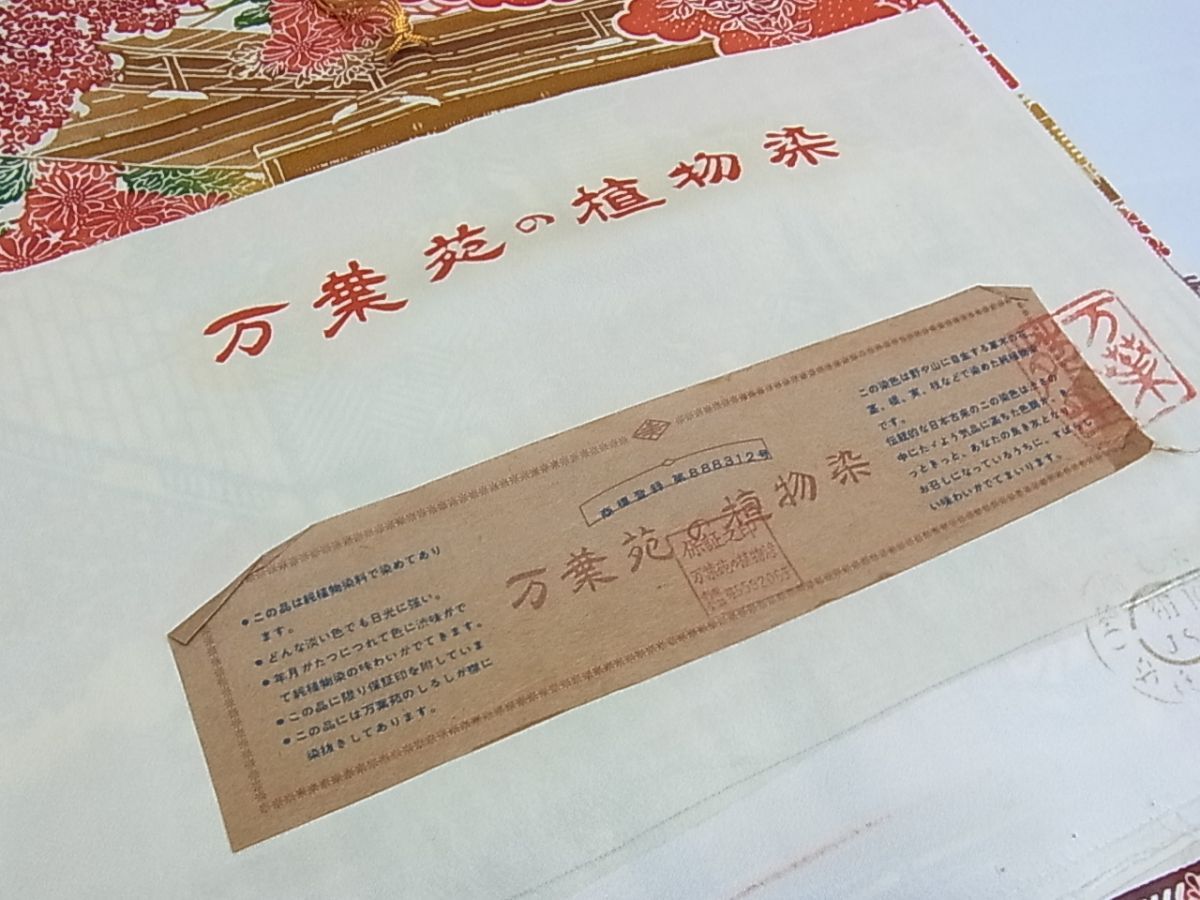 万葉苑の植物染
万葉
商標登録 第888312号
万葉苑の植物染
保証之印
万葉苑の植物染
この染色は野や山に自生する草木の花、
茎、根、実、枝などで染めた純植物染
です。
伝統的な日本古来のこの染色は
中にただよう気品に満ちた色調が、き
っときっと、あなたの良き友となり
お召しになっているうちに、すばらし
い味わいがでてまいります。
●この品は純植物染料で染めてあり
ます。
●どんな淡い色でも日光に強い。
●年月がたつにつれて色に渋味がで
て純植物染の味わいがでてきます。
●この品に限り保証印を附していま
●この品には万葉苑のしるしが際に
染抜きしてあります。